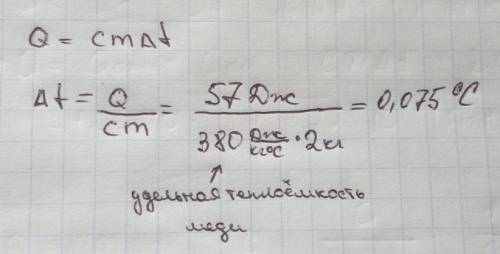 Q = cmΔt
Δt = Q/cm = 57 Дж / 380 Дж/кг°С · 2 кг = 0,075 °С
удельная теплоёмкость
меди